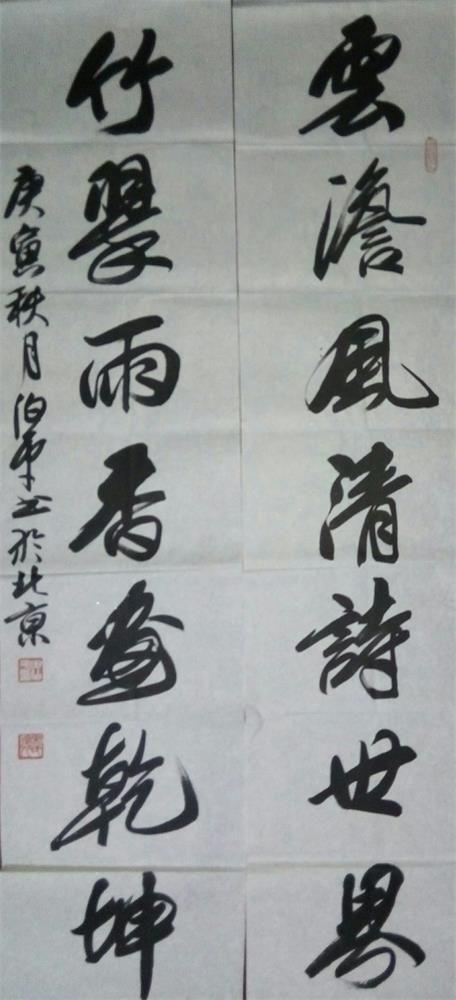 雲澹風清詩世界
竹翠雨香畫乾坤
庚寅秋月伯平书於北京